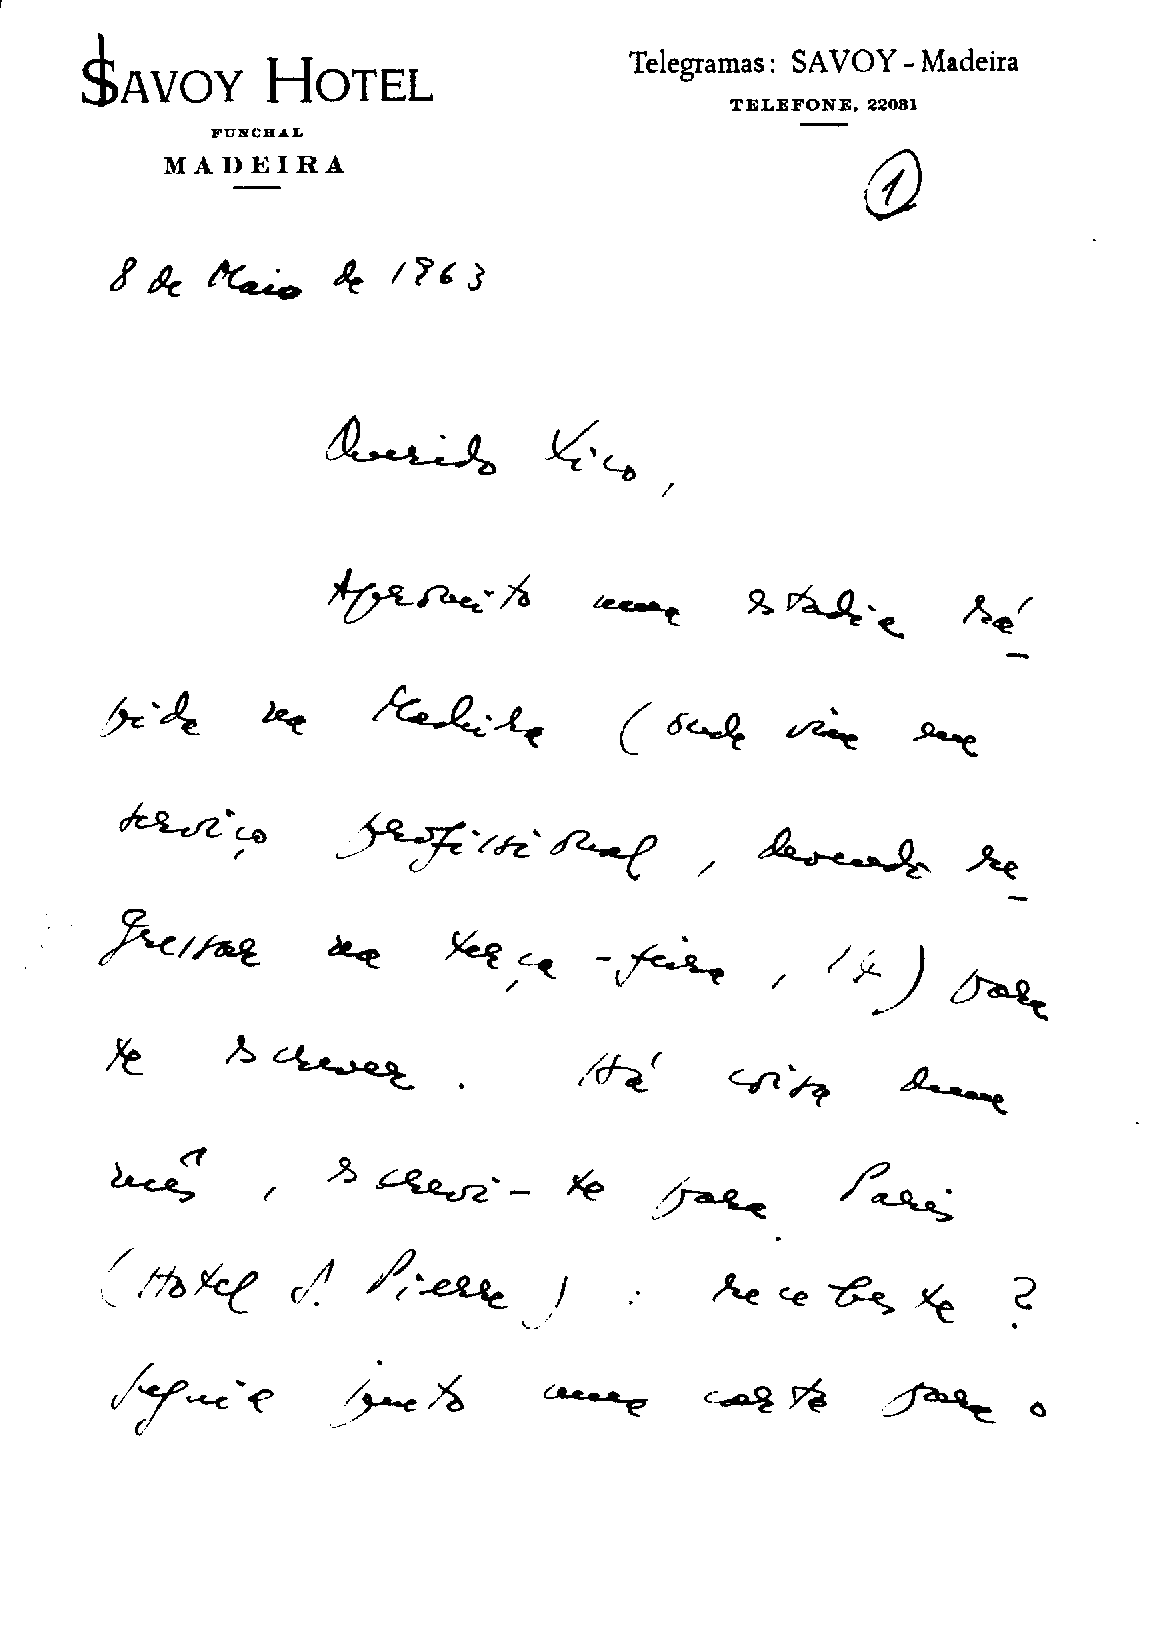 SAVOY HOTEL
FUNCHAL
MADEIRA
Telegramas: SAVOY - Madeira
TELEFONE, 22031
1
8 de Maio de 1963
Querido Xico,
Aproveito uma estadia rá-
pida na Madeira (onde vim em
serviço profissional, devendo re-
gressar na terça-feira, 14) para
te escrever. Há coisa dum
mês, escrevi-te para Paris
(Hotel S. Pierre): recebeste?
Seguia junto uma carta para o